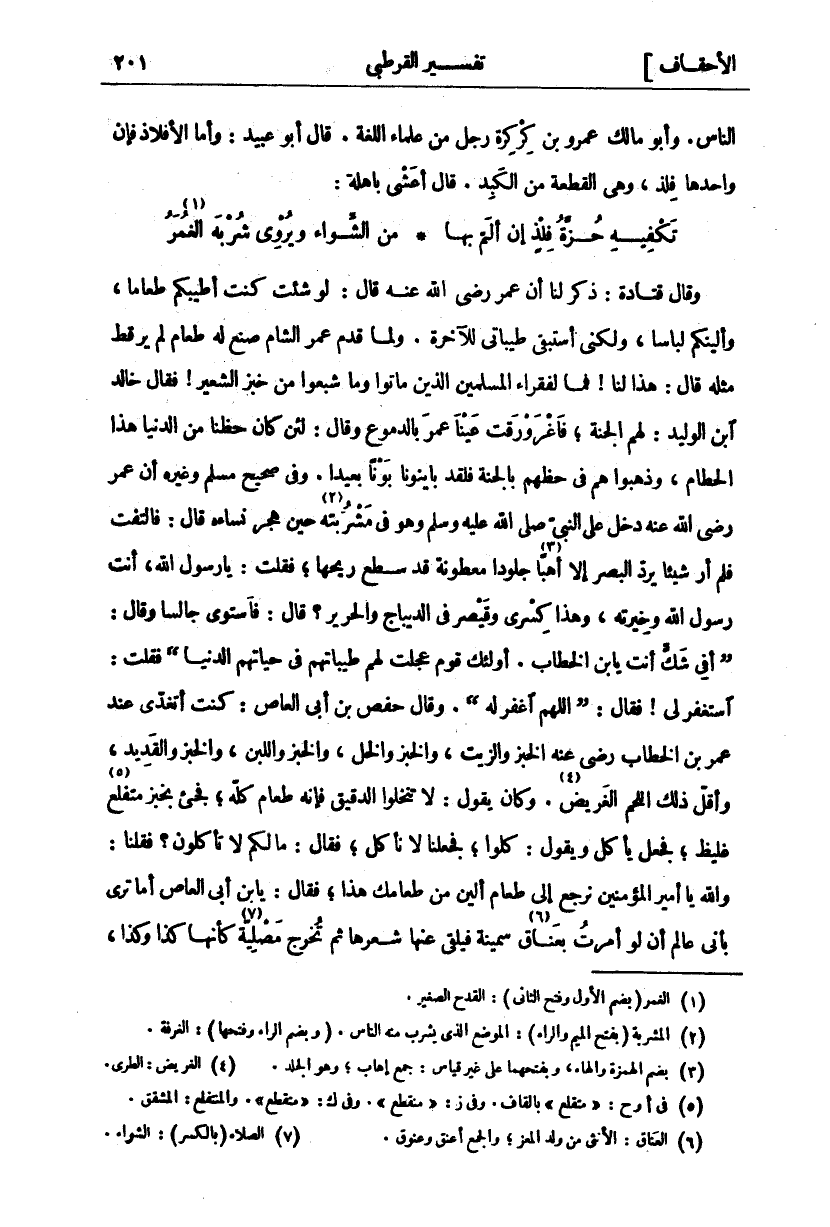 الأحقاف ] تفسير القرطبى ٢٠١
الناس. وأبو مالك عمرو بن كِرْكِرة رجل من علماء اللغة . قال أبو عبيد : وأما الأفلاذ فإن
واحدها فِلذ ، وهى القطعة من الكَبِد . قال أَعْشَى باهلة :
تَكْفِيـه حُـزَّةُ فِلْذٍ إن ألَمّ بهـا * من الشّـواء ويُرْوِى شُرْبَه الغُمَرُ (١)
وقال قتـادة : ذكر لنا أن عمر رضى الله عنـه قال : لو شئت كنت أطيبكم طعاما ،
وألينكم لباسا ، ولكنى أستبقى طيباتى للآخرة . ولمـا قدم عمر الشام صنع له طعام لم ير قط
مثله قال : هذا لنا ! فمـا لفقراء المسلمين الذين ماتوا وما شبعوا من خبز الشعير ! فقال خالد
آبن الوليد : لهم الجنة ؛ فَاغْرَوْرَقت عَيْنَا عمرَ بالدموع وقال : لئن كان حظنا من الدنيا هذا
الحطام ، وذهبوا هم فى حظهم بالجنة فلقد باينونا بَوْنًا بعيدا . وفى صحيح مسلم وغيره أن عمر
رضى الله عنه دخل على النبىّ صلى الله عليه وسلم وهو فى مَشْرُبته (٢) حين هجر نساءه قال : فالتفت
فلم أر شيئا يردّ البصر إلا أُهبًا (٣) جلودا معطونة قد سـطع ريحها ؛ فقلت : يارسول الله، أنت
رسول الله وخِيرته ، وهذا كِسْرى وقَيْصر فى الديباج والحرير ؟ قال : فآستوى جالسا وقال :
” أفى شَكٍّ أنت يابن الخطاب . أولئك قوم عجلت لهم طيباتهم فى حياتهم الدنيـا “ فقلت :
آستغفر لى ! فقال : ” اللهم آغفر له “ . وقال حفص بن أبى العاص : كنت أتغدّى عند
عمر بن الخطاب رضى عنه الخبز والزيت ، والخبز والخل ، والخبز واللبن ، والخبز والقَدِيد ،
وأقلّ ذلك اللحم الغَريض (٤) . وكان يقول : لا تنخلوا الدقيق فإنه طعام كلّه ؛ فجئ بخبز متفلع (٥)
غليظ ؛ فجعل يأكل ويقول : كلوا ؛ فجعلنا لا نأكل ؛ فقال : مالكم لا تأكلون؟ فقلنا :
والله يا أمير المؤمنين نرجع إلى طعام ألين من طعامك هذا ؛ فقال : يابن أبى العاص أما ترى
بأنى عالم أن لو أمرتُ بعَنـاق (٦) سمينة فيلقى عنها شـعرها ثم تُخرج مَصْلِيَّة (٧) كأنهـا كذا وكذا ،
(١) الغمر (بضم الأول وفتح الثانى) : القدح الصغير .
(٢) المشربة (بفتح الميم والراء) : الموضع الذى يشرب منه الناس . (وبضم الراء وفتحها) : الغرفة .
(٣) بضم الهمزة والهاء، وبفتحهما على غير قياس : جمع إهاب ؛ وهو الجلد . (٤) الغريض : الطرى.
(٥) فى أ و ح : « متقلع » بالقاف. وفى ز : « منقطع » . وفى ك : «متقطع». والمتفلع : المشقق .
(٦) العناق : الأنثى من ولد المعز ؛ والجمع أعنق وعنوق . (٧) الصلاء (بالكسر) : الشواء .